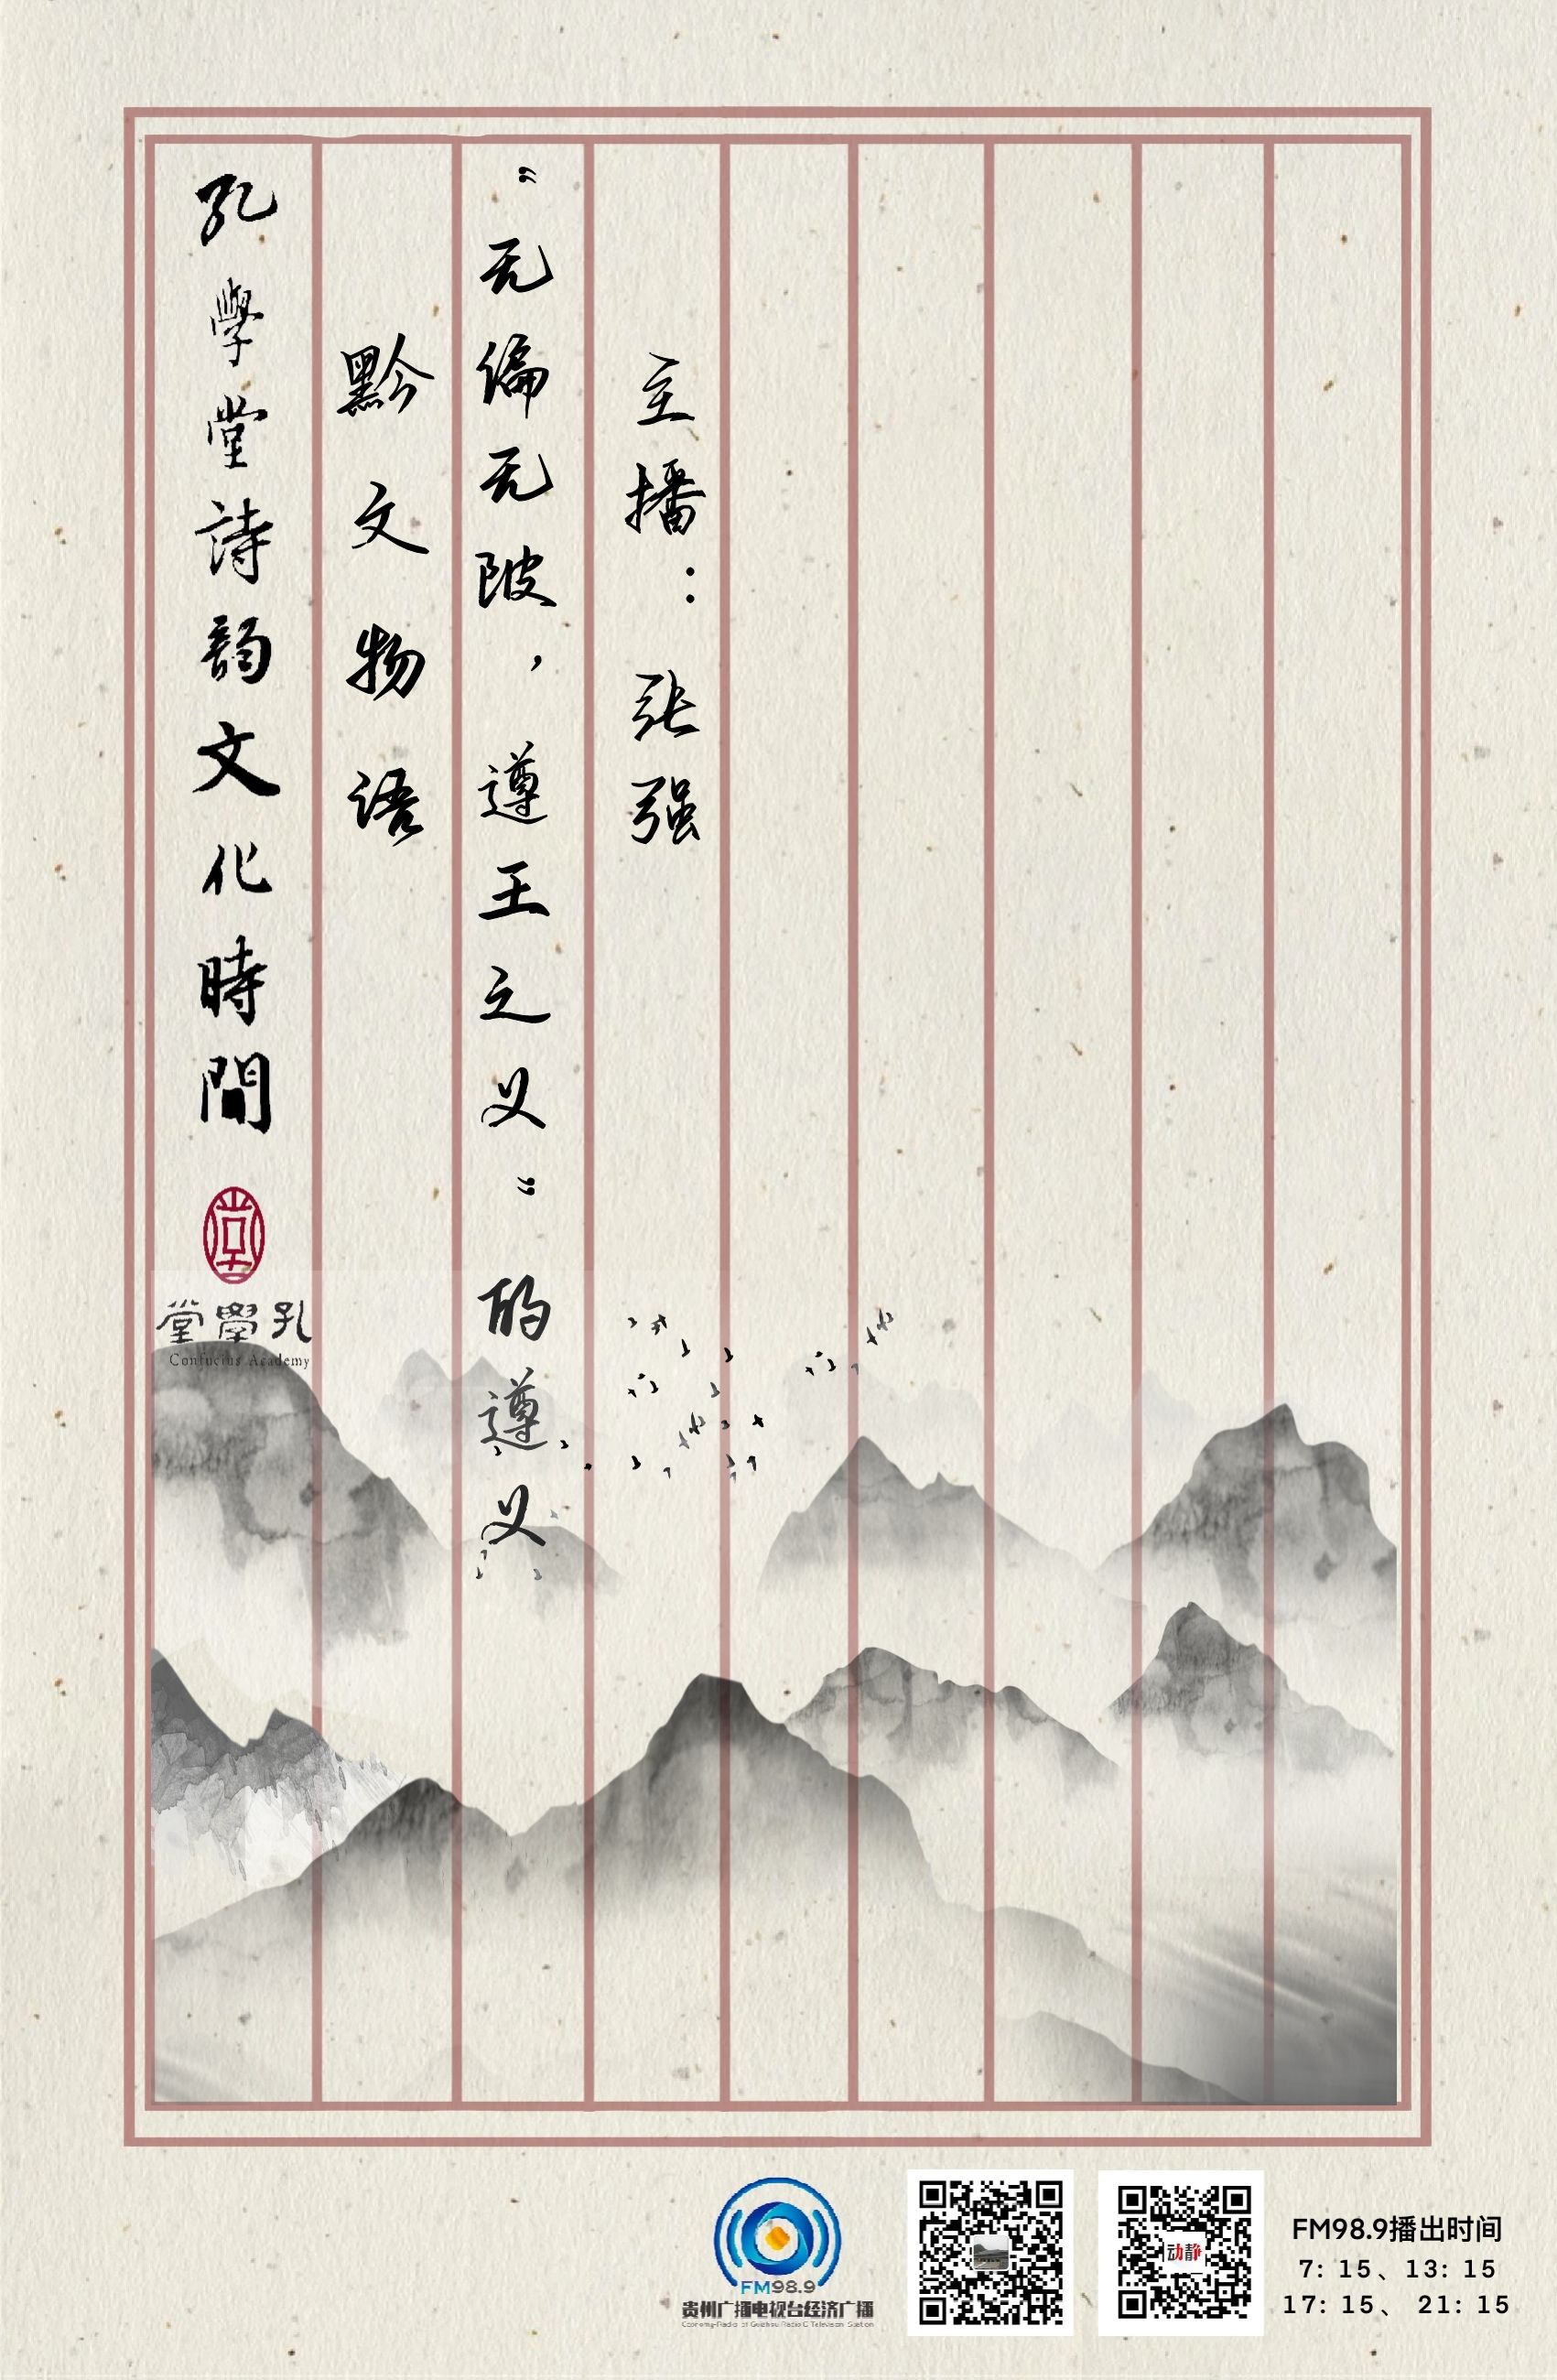 孔學堂詩韵文化時間
堂學孔
Confucius Academy
黔文物语
“无偏无陂，遵王之义”的遵义
主播：张强
FM98.9
贵州广播电视台经济广播
Economy-Radio of Guizhou Radio & Television Station
动静
FM98.9播出时间
7: 15、13: 15
17: 15、 21: 15